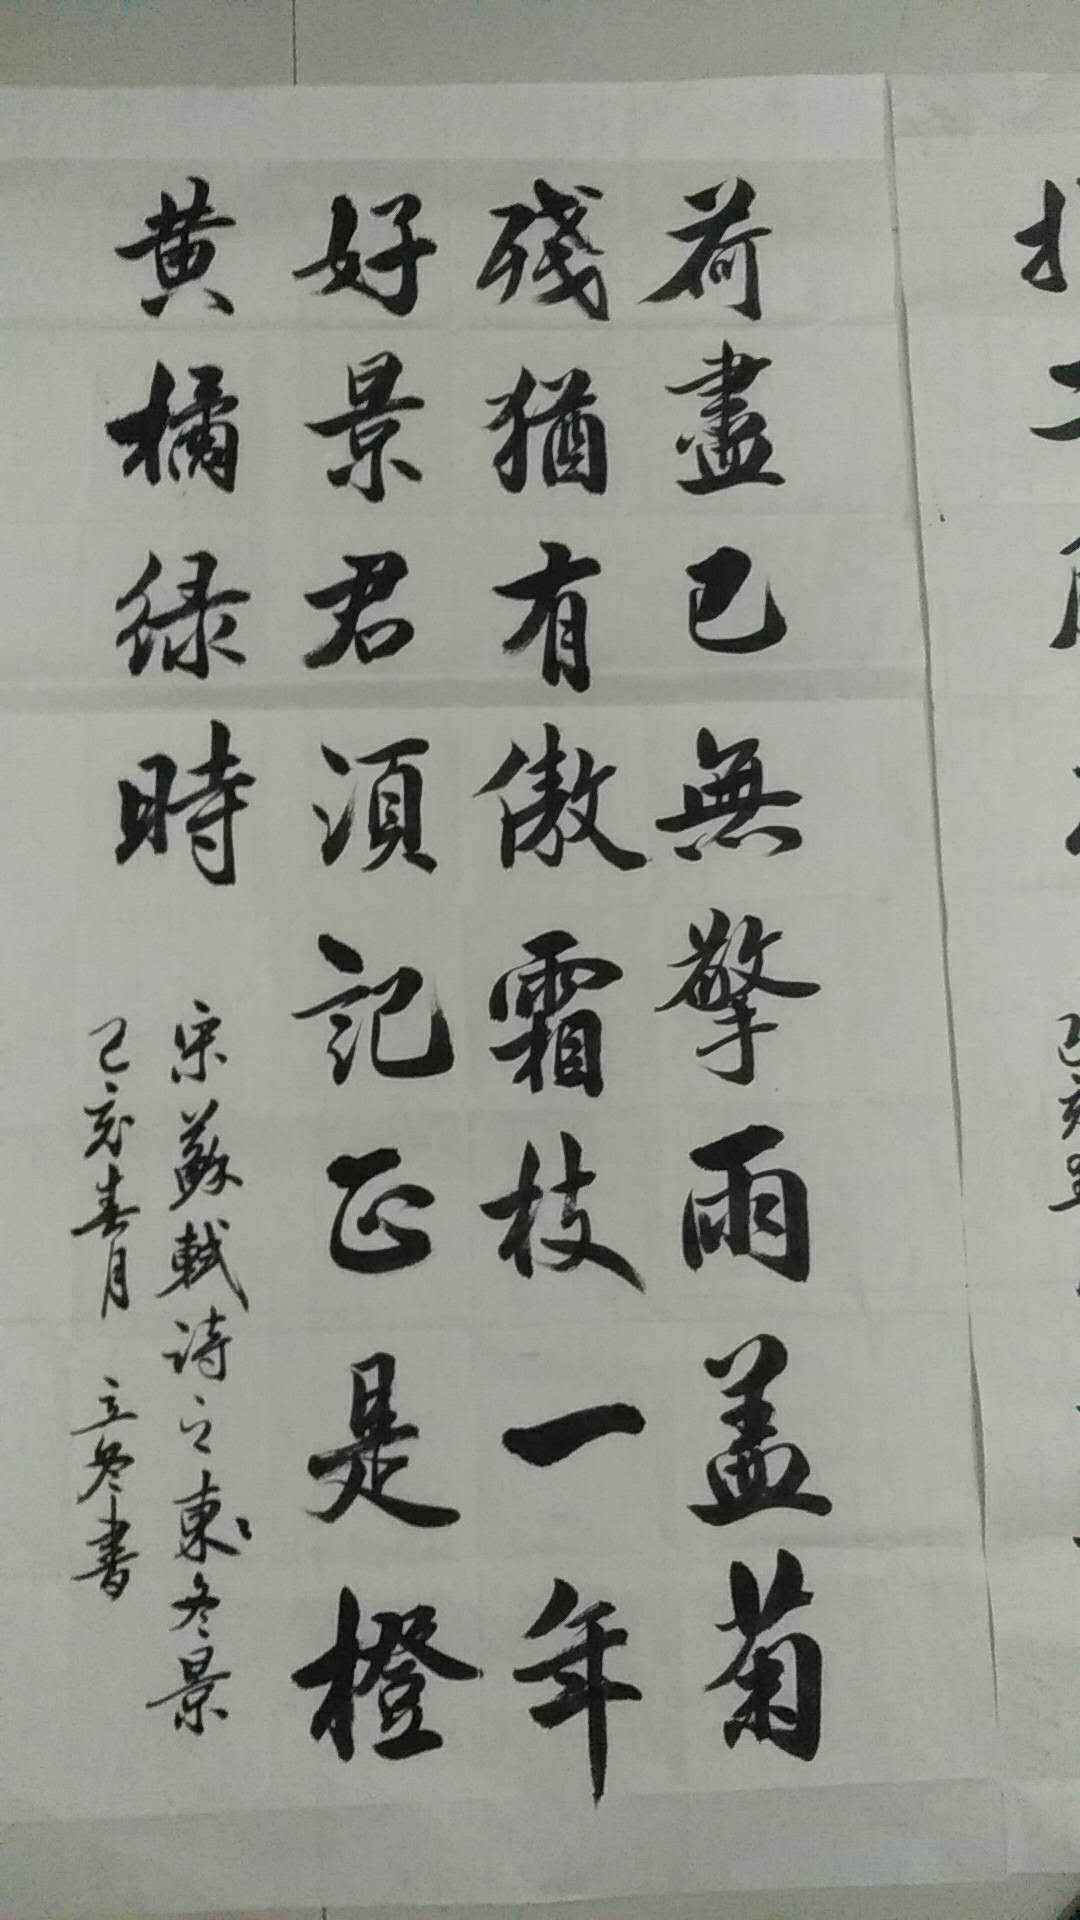 荷盡已無擎雨盖菊
殘猶有傲霜枝一年
好景君須記正是橙
黄橘緑時
宋蘇軾詩之東冬景
己亥春月 立冬書